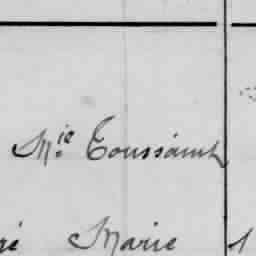 M.ie Toussaint
ré Marie 1